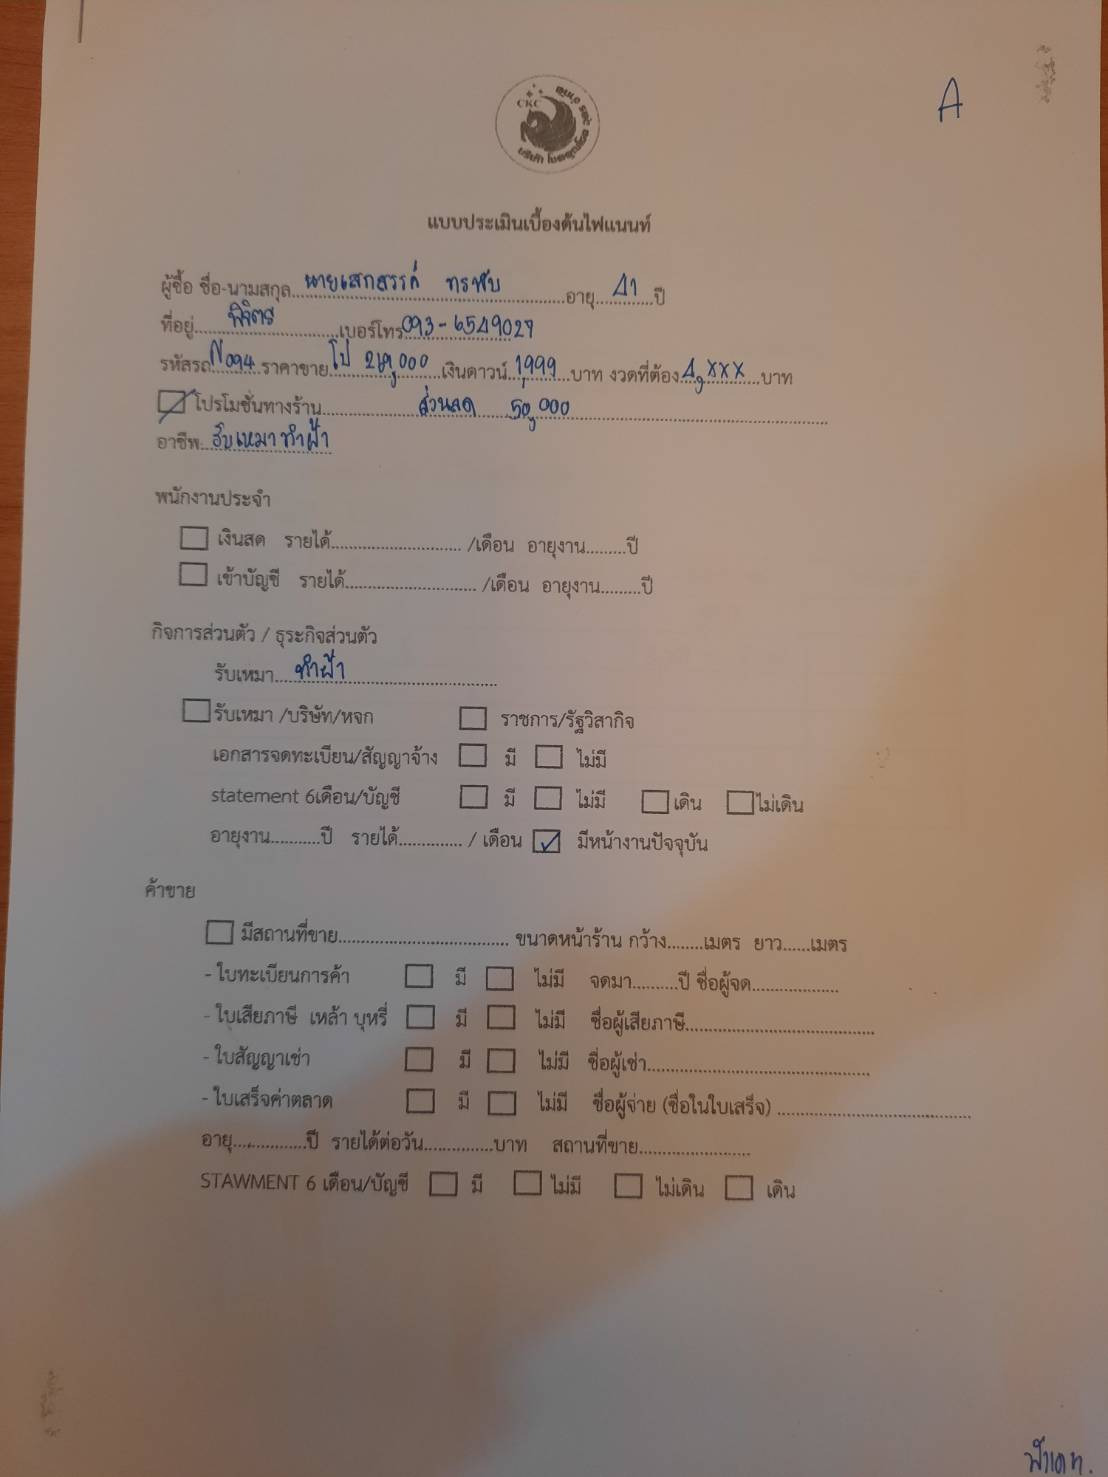 A
CKC
แบบประเมินเบื้องต้นไฟแนนท์
ผู้ซื้อ ชื่อ-นามสกุล นายเสกสรรค์ อายุ 41 ปี
ที่อยู่ พิจิตร เบอร์โทร 093-6549027
รหัสรถ N094 ราคาขาย โป 269,000 เงินดาวน์ 1,999 บาท งวดที่ต้อง 4,xxx บาท
โปรโมชั่นทางร้าน ส่วนลด 50,000
อาชีพ รับเหมาทำฝ้า
พนักงานประจำ
เงินสด รายได้ /เดือน อายุงาน ปี
เข้าบัญชี รายได้ /เดือน อายุงาน ปี
กิจการส่วนตัว / ธุระกิจส่วนตัว
รับเหมา ทำฝ้า
รับเหมา /บริษัท/หจก ราชการ/รัฐวิสากิจ
เอกสารจดทะเบียน/สัญญาจ้าง มี ไม่มี
statement 6เดือน/บัญชี มี ไม่มี เดิน ไม่เดิน
อายุงาน ปี รายได้ / เดือน ✓ มีหน้างานปัจจุบัน
ค้าขาย
มีสถานที่ขาย ขนาดหน้าร้าน กว้าง เมตร ยาว เมตร
- ใบทะเบียนการค้า มี ไม่มี จดมา ปี ชื่อผู้จด
- ใบเสียภาษี เหล้า บุหรี่ มี ไม่มี ชื่อผู้เสียภาษี
- ใบสัญญาเช่า มี ไม่มี ชื่อผู้เช่า
- ใบเสร็จค่าตลาด มี ไม่มี ชื่อผู้จ่าย (ชื่อในใบเสร็จ)
อายุ ปี รายได้ต่อวัน บาท สถานที่ขาย
STAWMENT 6 เดือน/บัญชี มี ไม่มี ไม่เดิน เดิน